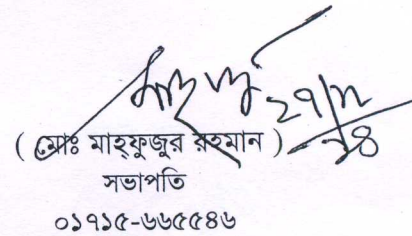 ( মোঃ মাহ্‌ফুজুর রহমান )
সভাপতি
০১৭১৫-৬৬৫৫৪৬